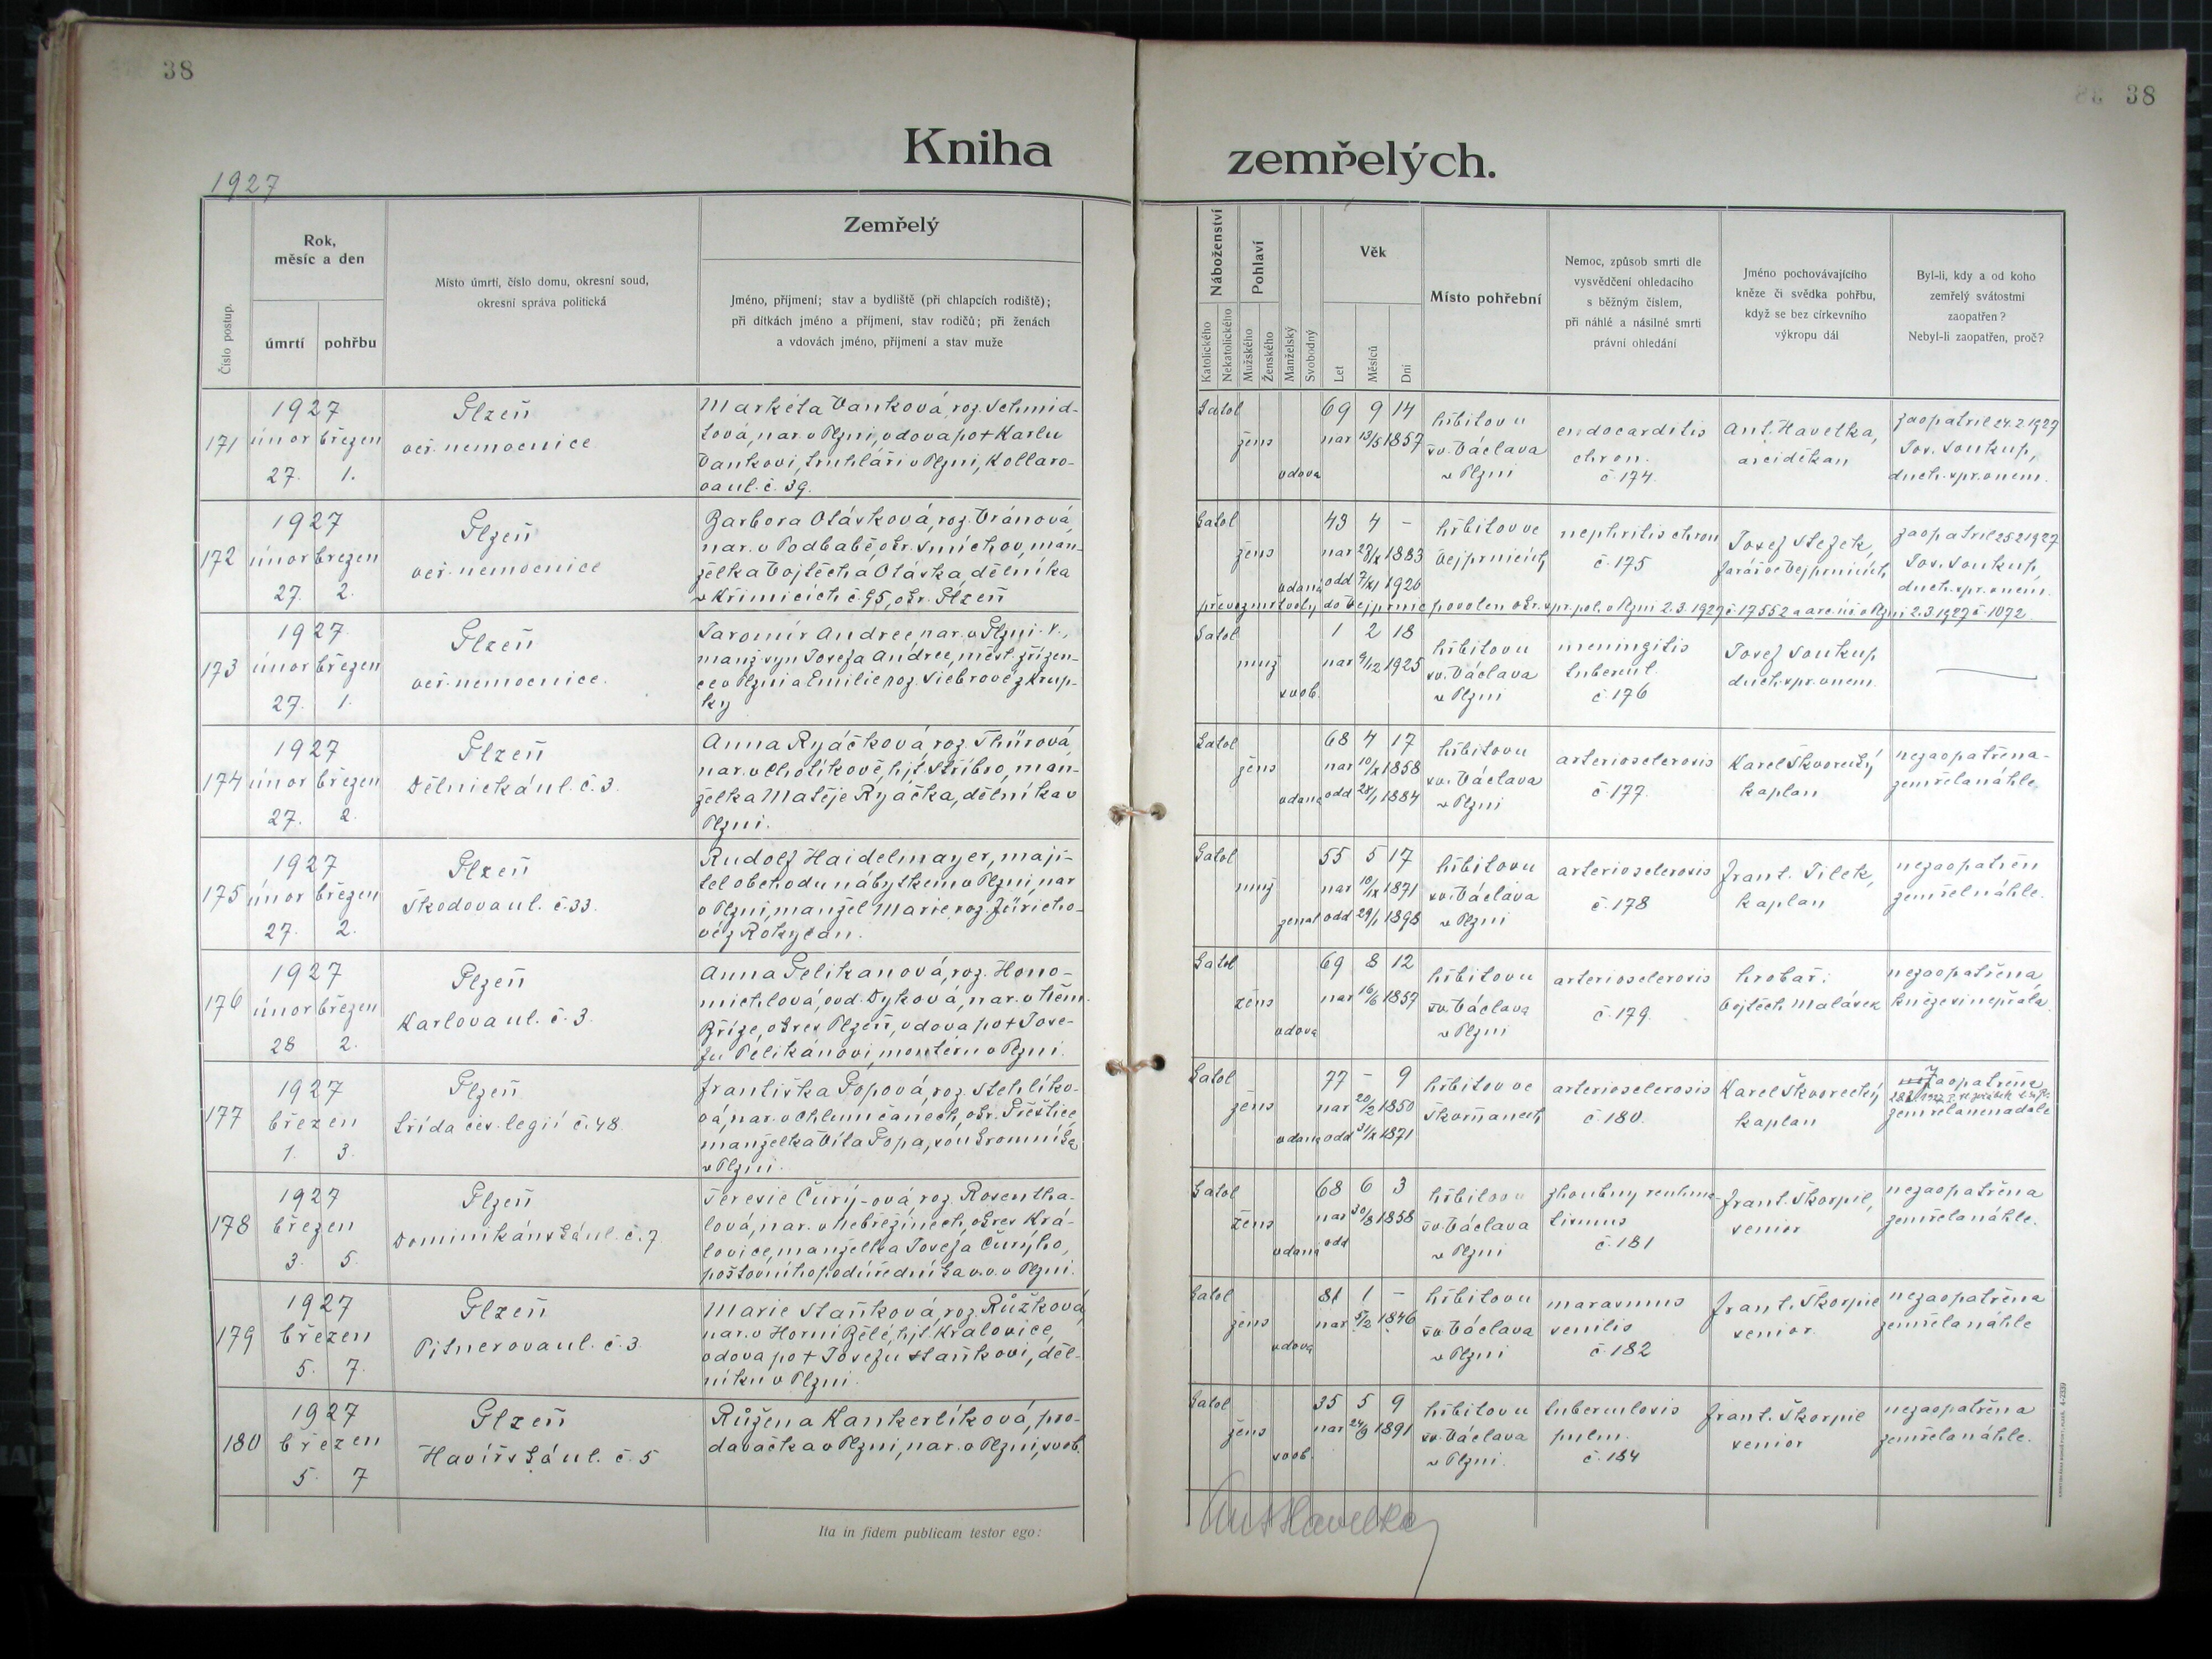 38
38
Kniha zemřelých.
1927
Číslo postup.
Rok,
měsíc a den
úmrtí
pohřbu
Místo úmrtí, číslo domu, okresní soud,
okresní správa politická
Zemřelý
Jméno, příjmení; stav a bydliště (při chlapcích rodiště);
při dítkách jméno a příjmení, stav rodičů; při ženách
a vdovách jméno, příjmení a stav muže
Náboženství
Katolického
Nekatolického
Pohlaví
Mužského
Ženského
Manželský
Svobodný
Věk
Let
Měsíců
Dní
Místo pohřební
Nemoc, způsob smrti dle
vysvědčení ohledacího
s běžným číslem,
při náhlé a násilné smrti
právní ohledání
Jméno pochovávajícího
kněze či svědka pohřbu,
když se bez církevního
výkropu dál
Byl-li, kdy a od koho
zemřelý svátostmi
zaopatřen?
Nebyl-li zaopatřen, proč?
171
1927
únor březen
27. 1.
Plzeň
veř. nemocnice
Markéta Vanková, roz. Schmid-
tová, nar. v Plzni, vdova po + Karlu
Vankovi, truhláři v Plzni, Kollaro-
va ul. č. 39.
katol
žens
vdova
69 9 14
nar 13/5 1857
hřbitov u
sv. Václava
v Plzni
endocarditis
chron.
č. 174.
Ant. Havelka,
arciděkan
zaopatřil 24.2.1927
Jos. Soukup,
duch. spr. v nem.
172
1927
únor březen
27. 2.
Plzeň
veř. nemocnice
Barbora Otásková, roz. Vránová,
nar. v Podbabě, okr. Smíchov, man-
želka Vojtěcha Otáska, dělníka
v Křimicích č. 95, okr. Plzeň
katol
žens
vdaná
43 4 -
nar 28/X 1883
odd 7/XI 1926
hřbitov ve
Vejprnicích
nephritis chron
č. 175
Josef Stezek,
farář ve Vejprnicích
zaopatřil 25 2 1927
Jos. Soukup,
duch. spr. v nem.
převoz mrtvoly do Vejprnic povolen okr. spr. pol. v Plzni 2.3.1927 č. 17552 a v Plzni 2.3.1927 č. 1072.
173
1927.
únor březen
27. 1.
Plzeň
veř. nemocnice.
Jaromír Andree, nar. v Plzni.
manž. syn Josefa Andree, měst. zřízen-
ce v Plzni a Emilie roz. Siebrové z Krup-
ky
katol
muž
svob.
1 2 18
nar 9/12 1925
hřbitov u
sv. Václava
v Plzni
meningitis
tubercul.
č. 176
Josef Soukup
duch. spr. v nem.
174
1927
únor březen
27. 2.
Plzeň
Dělnická ul. č. 3.
Anna Ryáčková, roz. Thürová,
nar. v Chotíkově, hjt. Stříbro, man-
želka Matěje Ryáčka, dělníka v
Plzni.
katol
žens
vdaná
68 4 17
nar 10/X 1858
odd 28/1 1884
hřbitov u
sv. Václava
v Plzni
arteriosclerosis
č. 177.
Karel Škvorecký
kaplan
nezaopatřena-
zemřela náhle.
175
1927
únor březen
27. 2.
Plzeň
Škodova ul. č. 33.
Rudolf Haidelmayer, maji-
tel obchodu nábytkem v Plzni, nar
v Plzni, manžel Marie, roz. Züricho-
vé z Rokycan.
katol
muž
ženat
55 5 17
nar 10/IX 1871
odd 29/1 1898
hřbitov u
sv. Václava
v Plzni
arteriosclerosis
č. 178
Frant. Tilek,
kaplan
nezaopatřen
zemřel náhle.
176
1927
únor březen
28 2.
Plzeň
Karlova ul. č. 3.
Anna Pelikanová, roz. Hono-
michlová, ovd. Dyková, nar. v Něm.
Bříze, okres Plzeň, vdova po + Jose-
fu Pelikánovi, montéru v Plzni.
katol
žens
vdova
69 8 12
nar 16/6 1857
hřbitov u
sv. Václava
v Plzni
arteriosclerosis
č. 179.
hrobař:
Vojtěch Malásek
nezaopatřena
kněze si nepřála.
177
1927
březen
1. 3.
Plzeň
třída čes. legií č. 48
Františka Popová, roz. Stehlíko-
vá, nar. v Chlumčanech, okr. Přeštice,
manželka Víta Popa, soukromníka
v Plzni.
katol
žens
vdaná
77 - 9
nar 20/2 1850
odd 31/X 1871
hřbitov ve
Skvrňanech
arteriosclerosis
č. 180.
Karel Škvorecký
kaplan
zaopatřena
zemřela nenadále
178
1927
březen
3. 5.
Plzeň
Dominikánská ul. č. 7
Teresie Čurý-ová, roz. Rosentha-
lová, nar. v Nebřežinech, okres Kra-
lovice, manželka Josefa Čurýho,
poštovního podúředníka v.v. v Plzni.
katol
žens
vdaná
68 6 3
nar 30/8 1858
odd
hřbitov u
sv. Václava
v Plzni
zhoubný reuhma-
tismus
č. 181
Frant. Škorpil,
senior
nezaopatřena
zemřela náhle.
179
1927
březen
5. 7.
Plzeň
Pitnerova ul. č. 3.
Marie Staňková, roz. Růžková,
nar. v Horní Bělé, hjt. Kralovice,
vdova po + Josefu Staňkovi, děl-
níku v Plzni.
katol
žens
vdova
81 1 -
nar 5/2 1846
hřbitov u
sv. Václava
v Plzni
marasmus
senilis
č. 182
Frant. Škorpil
senior.
nezaopatřena
zemřela náhle
180
1927
březen
5. 7
Plzeň
Havířská ul. č. 5
Růžena Kankerlíková, pro-
davačka v Plzni, nar. v Plzni, svob.
katol
žens
svob.
35 5 9
nar 24/9 1891
hřbitov u
sv. Václava
v Plzni.
tuberculosis
pulm.
č. 184
Frant. Škorpil
senior
nezaopatřena
zemřela náhle.
Ita in fidem publicam testor ego:
Ant Havelka